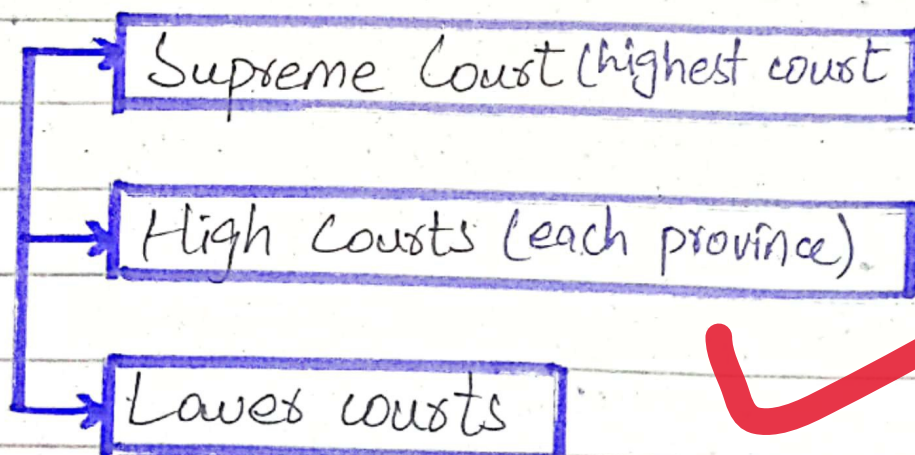 Supreme Court (highest court
High Courts (each province).
Lower courts